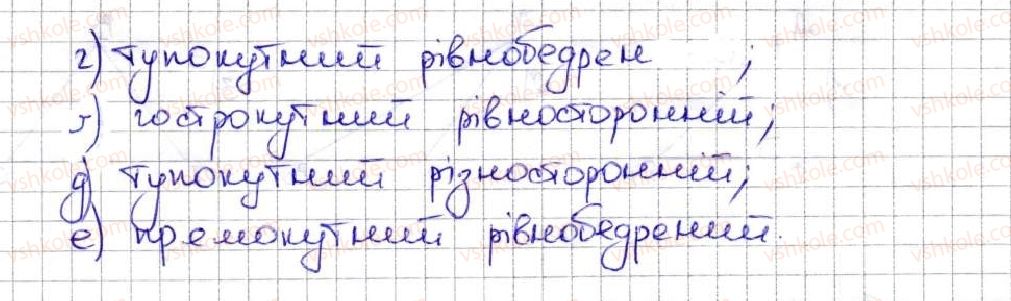 г) тупокутний рівнобедрен ;
ґ) гострокутний рівносторонній;
д) тупокутний різносторонній;
е) премокутний рівнобедрений.